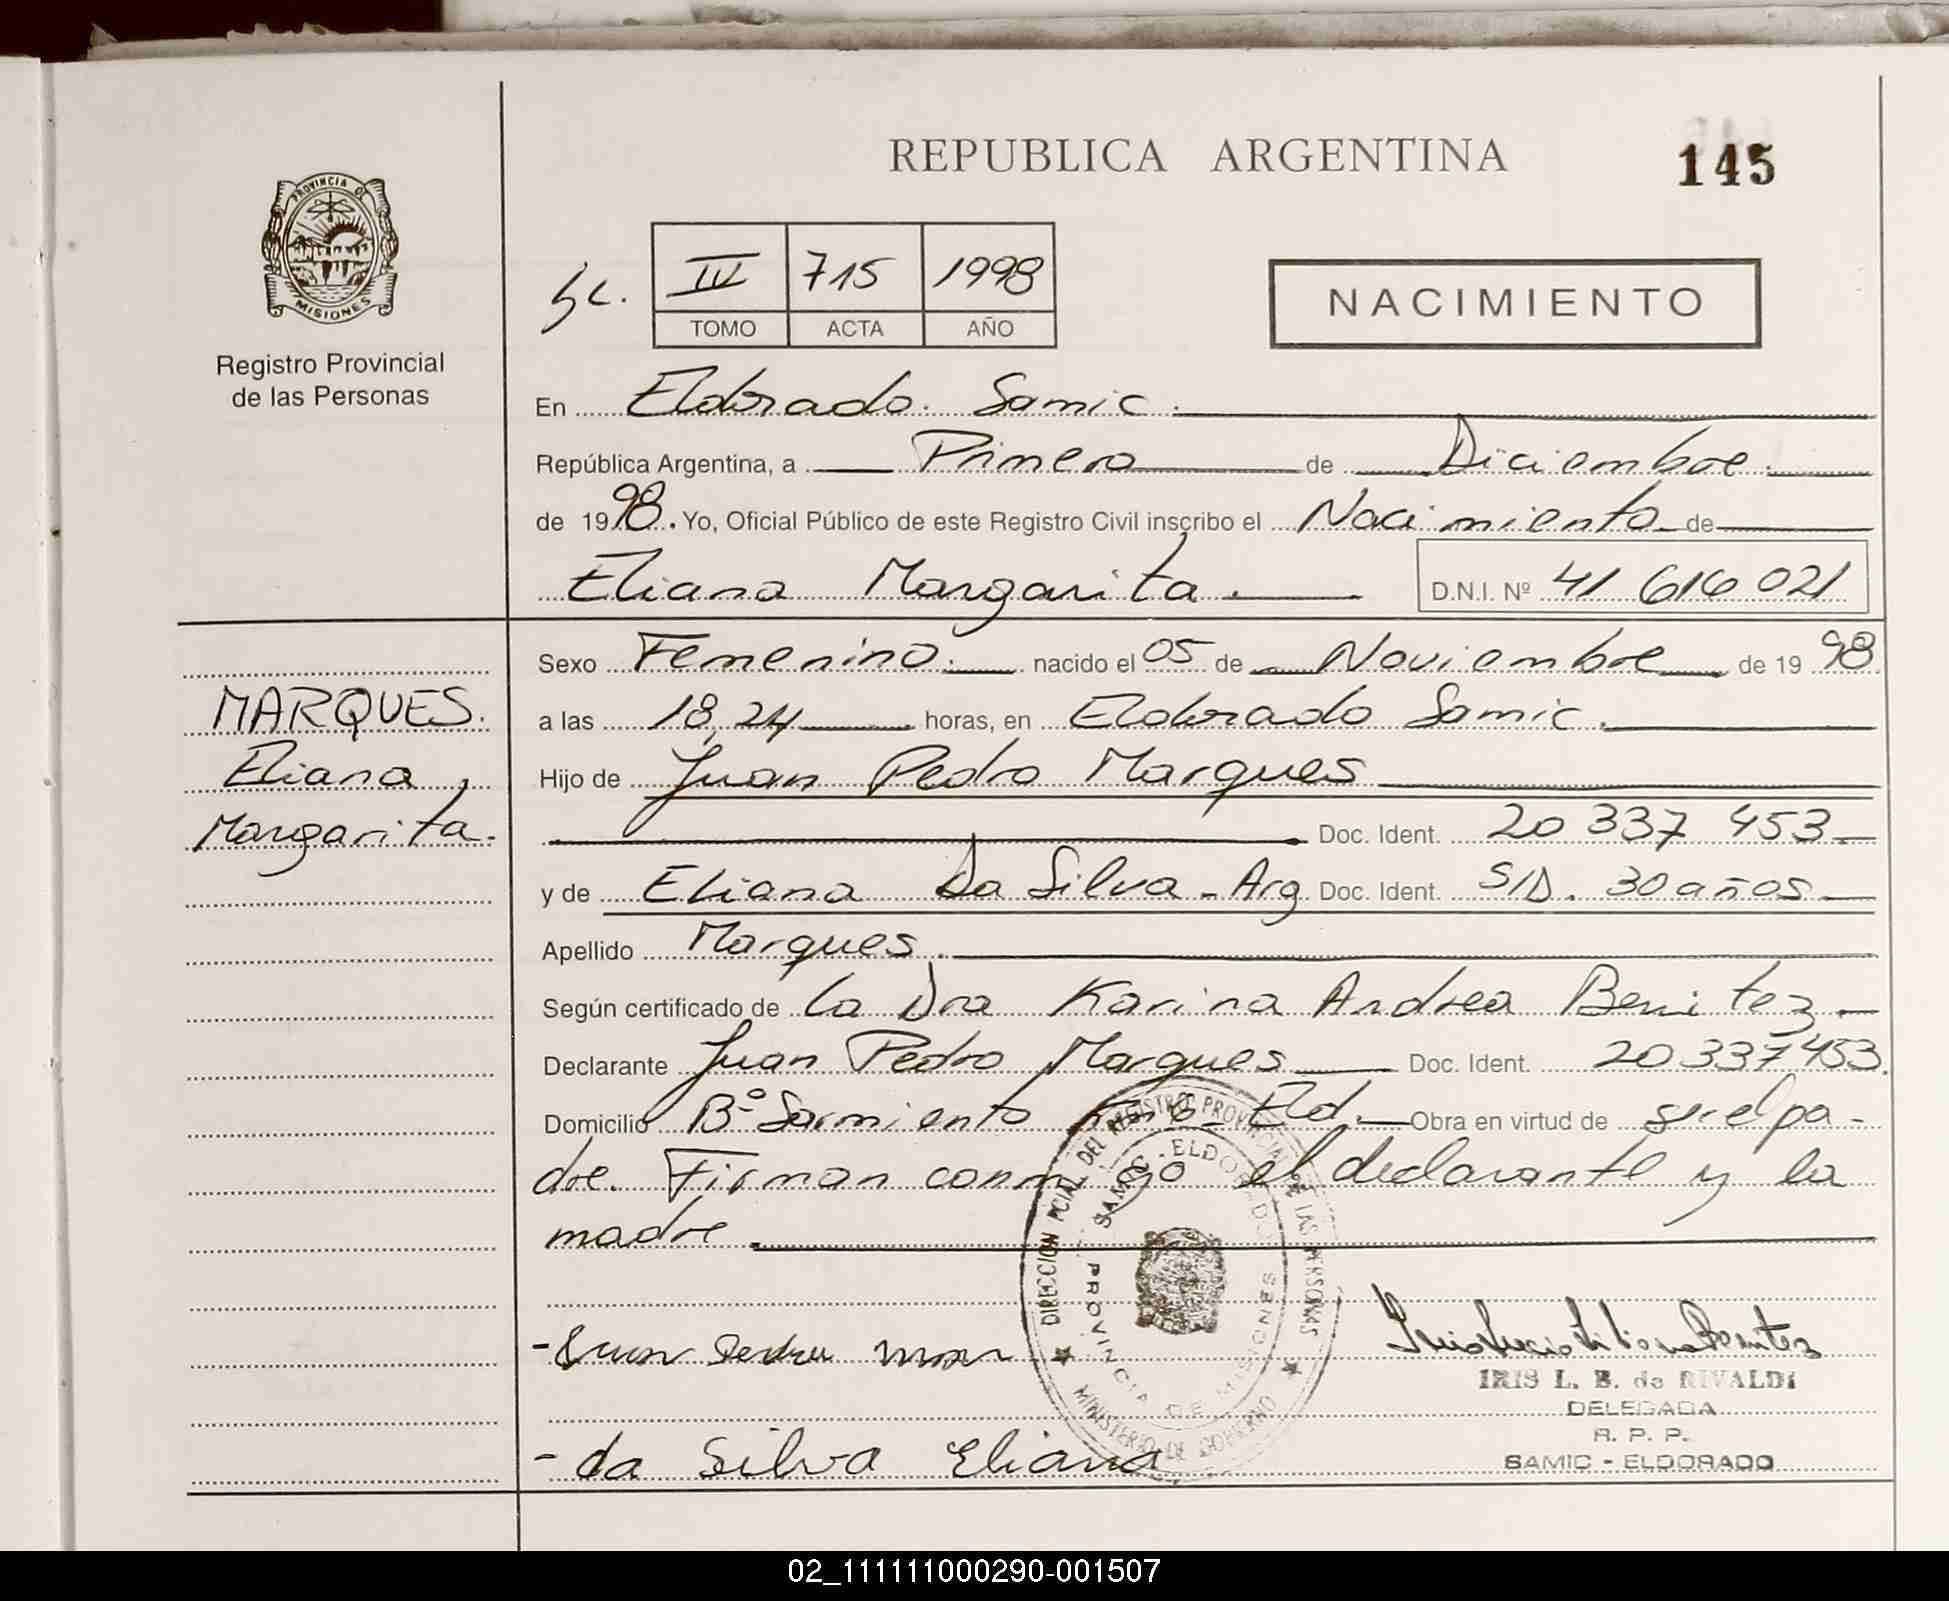 REPUBLICA ARGENTINA
145
PROVINCIA DE
MISIONES
Registro Provincial
de las Personas
IV 715 1998
TOMO ACTA AÑO
NACIMIENTO
En Eldorado. Samic.
República Argentina, a Primero de Diciembre
de 1998. Yo, Oficial Público de este Registro Civil inscribo el Nacimiento de
Eliana Margarita. D.N.I. Nº 41 616 021
Sexo Femenino. nacido el 05 de Noviembre de 1998
a las 18,24 horas, en Eldorado Samic.
Hijo de Juan Pedro Marques
Doc. Ident. 20 337 453
y de Eliana Da Silva - Arg. Doc. Ident. S/D. 30 años
Apellido Marques.
Según certificado de la Dra Karina Andrea Benitez
Declarante Juan Pedro Marques Doc. Ident. 20 337 453.
Domicilio Bº Sarmiento Eld. Obra en virtud de ser el pa-
dre. Firman conmigo el declarante y la
madre.
MARQUES.
Eliana
Margarita.
DIRECCION PCIAL DEL REGISTRO PROVINCIAL DE LAS PERSONAS
MINISTERIO DE GOBIERNO
SAMIC - ELDORADO
PROVINCIA DE MISIONES
IRIS L. B. de RIVALDI
DELEGADA
R. P. P.
SAMIC - ELDORADO
- da Silva Eliana
02_111111000290-001507